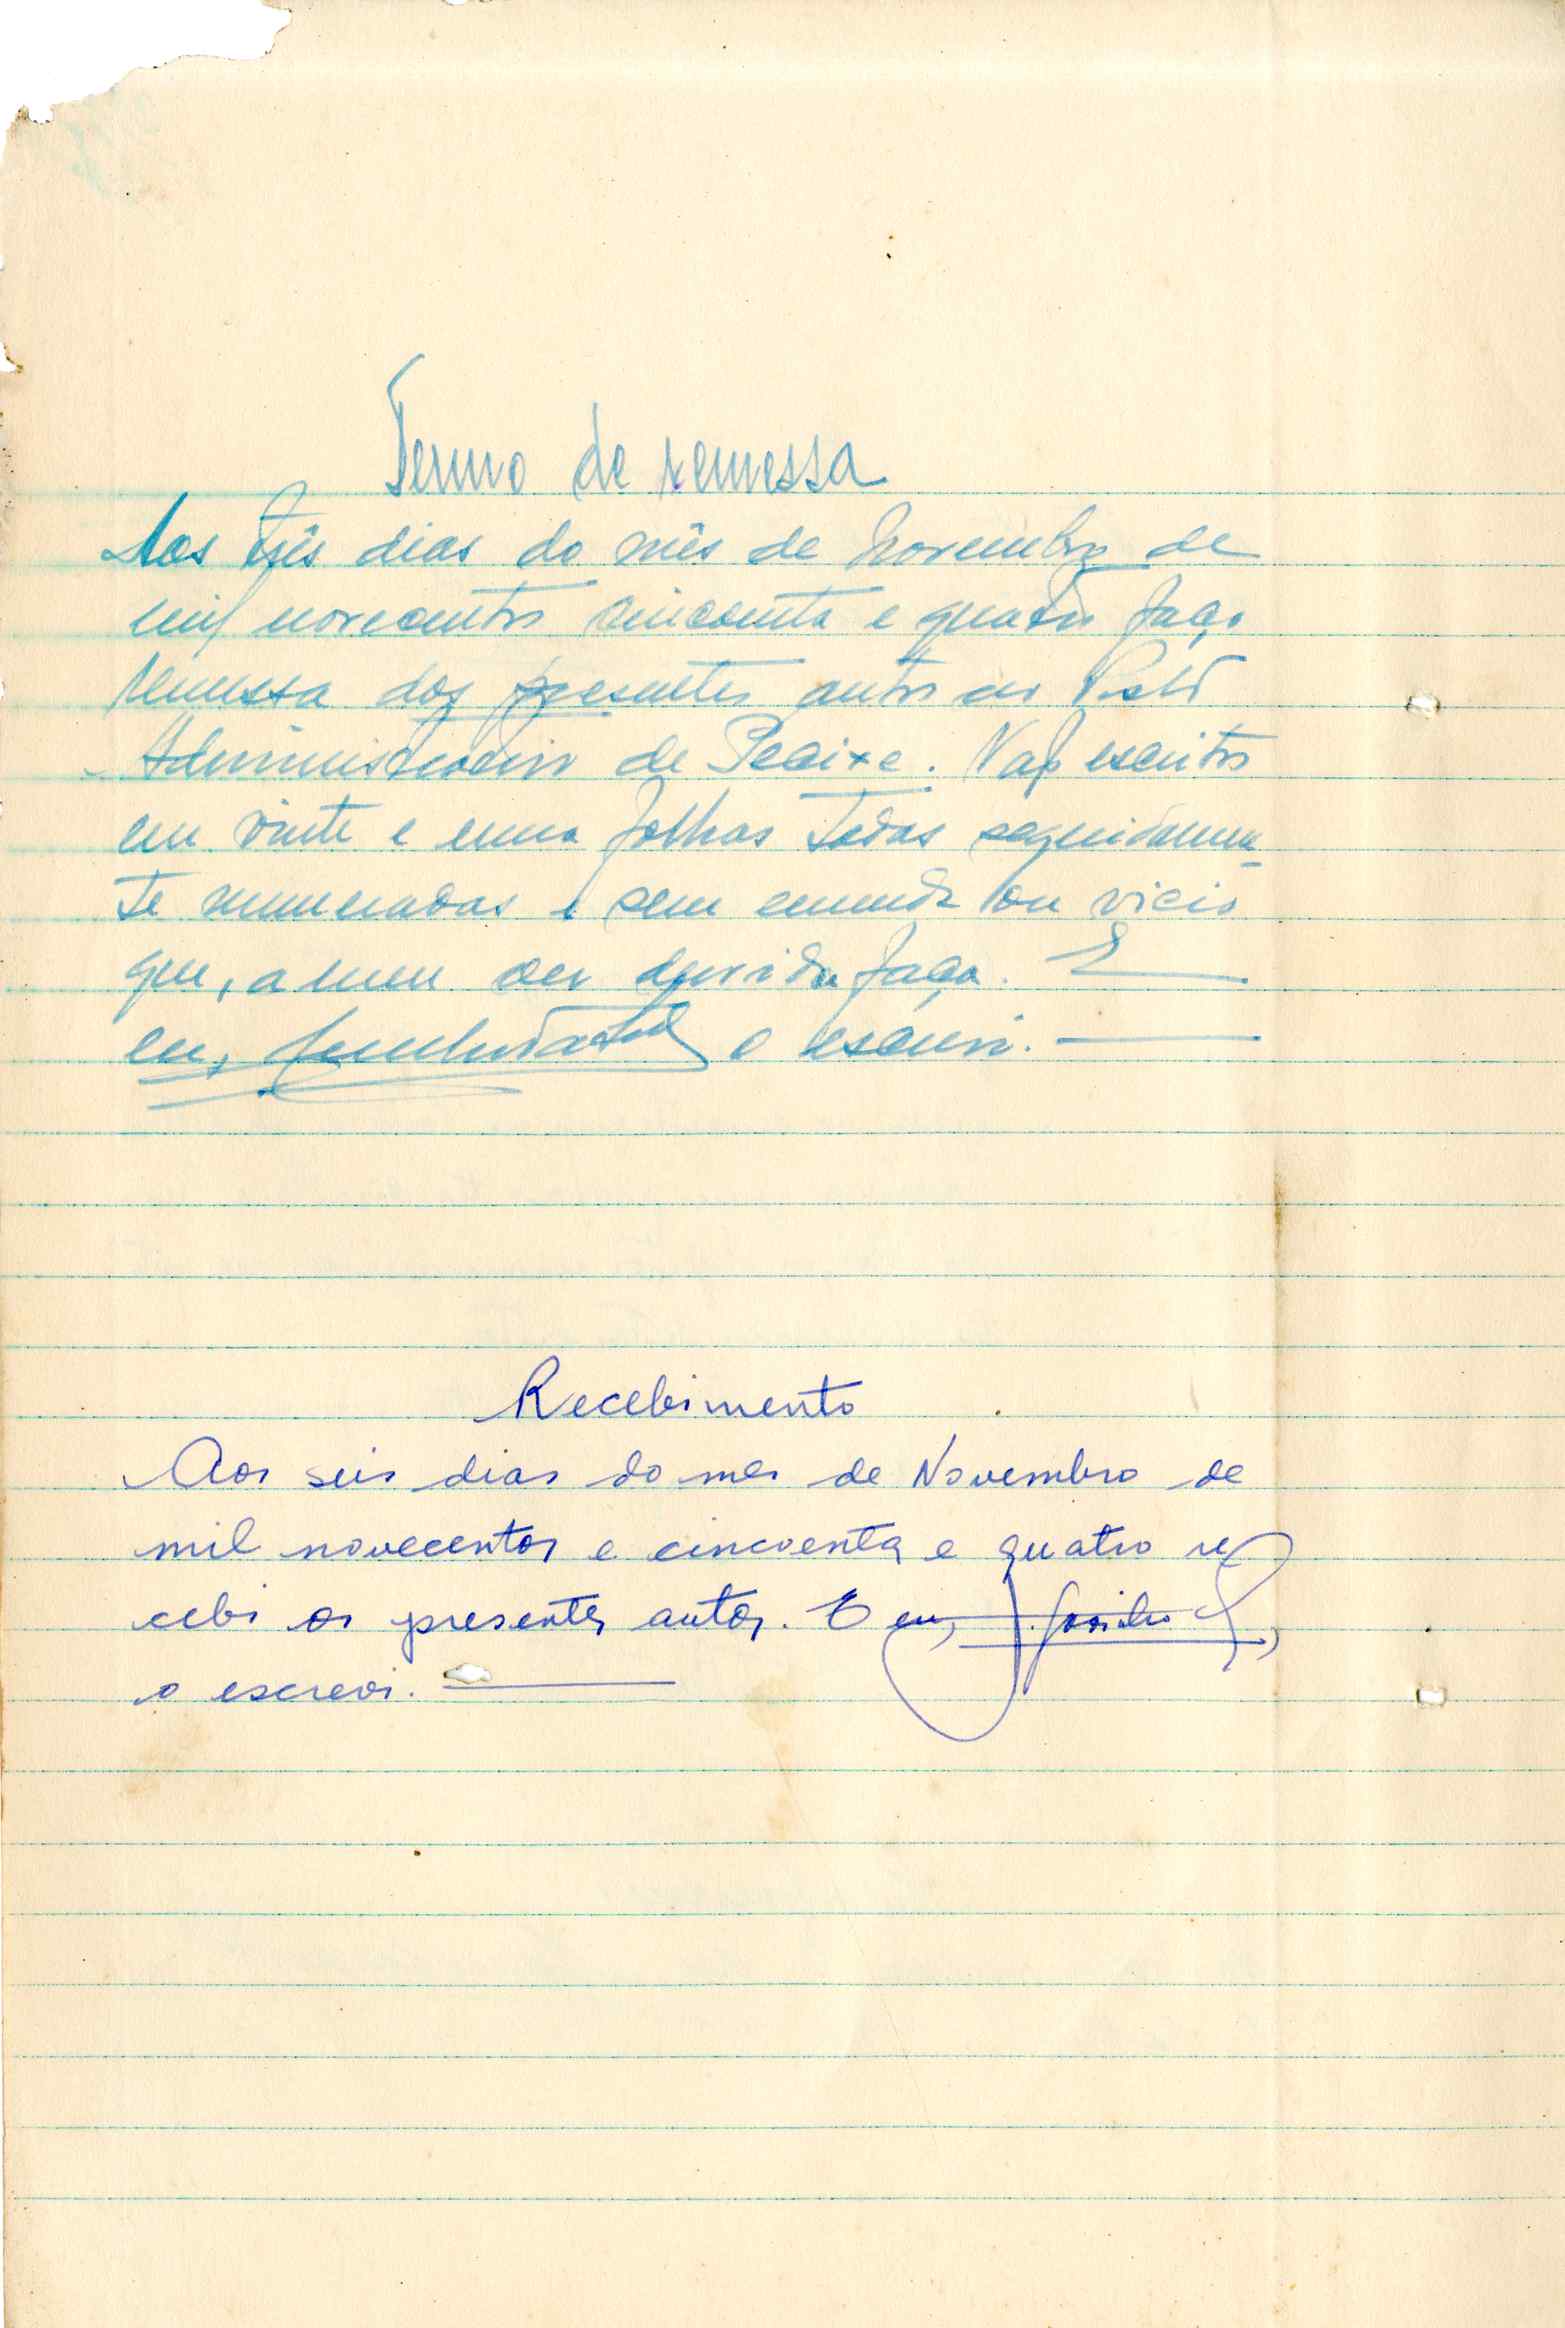 Termo de remessa
Aos três dias do mês de Novembro de
mil novecentos cincoenta e quatro faço
remessa dos presentes autos ao Posto
Administrativo de Peaixe. Vão escritos
em vinte e uma folhas todas seguidamen-
te numeradas e sem emenda ou vicio
que, a meu ver duvida faça. E
eu, o escrevi.
Recebimento
Aos seis dias do mes de Novembro de
mil novecentos e cincoenta e quatro re
cebi os presentes autos. E eu,
o escrevi.